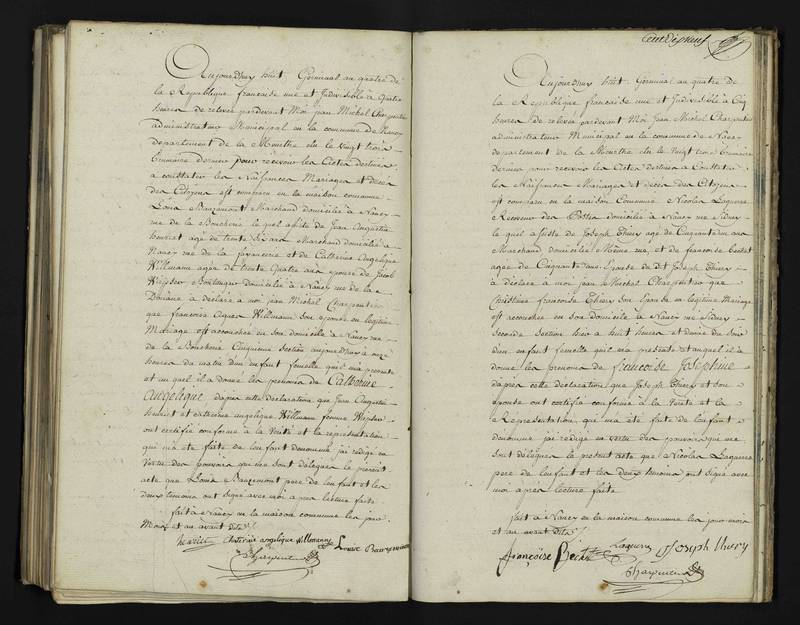 Aujourdhuy huit Germinal an quatre de
la Republique francaise une et Indivisible à quatre
heures de relevée pardevant Moi jean Michel Charpentier
administrateur Municipal en la commune de Nancy
departement de la Meurthe élu le vingt trois
brumaire dernier pour recevoir les Actes destinés
a constater les Naissances Mariages et décès
des Citoyens est comparu en la maison commune
Louis Marchand domicilié a Nancy
rue de la Boucherie le quel assisté de Jean Augustin
henriet agé de trente ans Marchand domicilié a
Nancy rue de la et de Catherine Angelique
Willmann agée de trente quatre ans épouse de Jacob
Boulanger domicilié à Nancy rue de la
Douane a déclaré a moi jean Michel Charpentier
que francoise Agnes Willmann son épouse en légitime
Mariage est accouchée en son domicile a Nancy rue
de la Boucherie Cinquieme section aujourdhuy a
heures du matin d'un enfant femelle quil m'a présenté
et au quel il a donné les prénoms de Catherine
Angelique dapres cette déclaration que Jean Augustin
henriet et catherine angelique Willmann femme
ont certifié conforme à la vérité et la représentation
qui m'a été faite de lenfant dénommé jai rédigé en
vertu des pouvoirs qui me sont délégués le présent
acte que Louis pere de lenfant et les
deux témoins ont signé avec moi apres lecture faite
fait a Nancy en la maison commune les jour
Mois et an avant dits
henriet Catherine angelique Willmann Louis
Charpentier
Cent dix neuf
Aujourdhuy huit Germinal an quatre de
la Republique francaise une et Indivisible à Cinq
heures de relevée pardevant Moi Jean Michel Charpentier
administrateur Municipal en la commune de Nancy
departement de la Meurthe élu le vingt trois Brumaire
dernier pour recevoir les Actes destinés a Constater
les Naissances Mariages et décès des Citoyens
est comparu en la maison Commune Nicolas Laguerre
Receveur des Postes domicilié a Nancy rue
le quel assisté de Joseph Thiery agé de Cinquante ans
Marchand domicilié Même rue et de francoise
agée de Cinquante ans Epouse du dt Joseph Thiery
a déclaré a moi jean Michel Charpentier que
Christine francoise Thiery son Epouse en légitime Mariage
est accouchée en son domicile a Nancy rue
seconde section hier a huit heures et demie du soir
d'un enfant femelle quil m'a présenté et auquel il a
donné les prénoms de francoise Josephine
dapres cette déclaration que Joseph Thiery et son
épouse ont certifié conforme à la vérité et la
Représentation qui m'a été faite de lenfant
dénommé jai rédigé en vertu des pouvoirs qui me
sont délégués le présent acte que Nicolas Laguerre
pere de lenfant et les deux témoins ont signé avec
moi apres lecture faite
fait a Nancy en la maison commune les jour mois
et an avant dits
françoise Laguerre Joseph Thiery
Charpentier